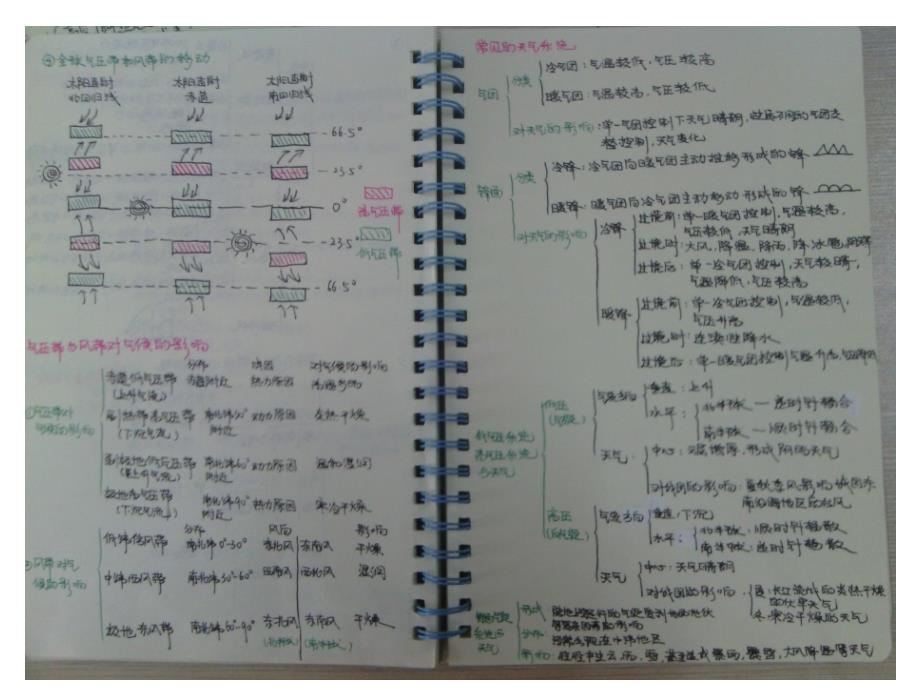 ④全球气压带和风带的移动
太阳直射 太阳直射 太阳直射
北回归线 赤道 南回归线
66.5°
23.5°
0°
23.5°
66.5°
高气压带
低气压带
气压带与风带对气候的影响
分布 成因 对气候的影响
①气压带对气候的影响
赤道低气压带 赤道附近 热力原因 高温多雨
(上升气流)
副热带高气压带 南北纬30°附近 动力原因 炎热干燥
(下沉气流)
副极地低气压带 南北纬60°附近 动力原因 温和湿润
极地高气压带 南北纬90°附近 热力原因 寒冷干燥
(下沉气流)
分布 风向 影响
②风带对气候的影响
低纬信风带 南北纬0°-30° 东北风 东南风 干燥
中纬西风带 南北纬30°-60° 西南风 西北风 湿润
极地东风带 南北纬60°-90° 东北风 东南风 干燥
(北半球) (南半球)
常见的天气系统
气团
分类
冷气团:气温较低,气压较高
暖气团:气温较高,气压较低
对天气的影响:单一气团控制下天气晴朗,性质不同的气团交
替控制,天气变化
锋面
分类
冷锋:冷气团向暖气团主动推移形成的锋
暖锋:暖气团向冷气团主动移动形成的锋
对天气的影响
冷锋
过境前:单一暖气团控制,气温较高,
气压较低,天气晴朗
过境时:大风,降温,降雨,降冰雹
过境后:单一冷气团控制,天气转晴,
气温降低,气压较高
暖锋
过境前:单一冷气团控制,气温较低,
气压升高
过境时:连续性降水
过境后:单一暖气团控制气温升高,气压
低气压系统
高气压系统
与天气
低压
(气旋)
气流方向
垂直:上升
水平:
北半球—逆时针辐合
南半球—顺时针辐合
天气
中心:云层增厚,形成阴雨天气
对我国的影响:夏秋季风影响我国东
南沿海地区的台风
高压
(反气旋)
气流方向
垂直:下沉
水平:
北半球:顺时针辐散
南半球:逆时针辐散
天气
中心:天气晴朗
对我国的影响:
夏:长江流域的炎热干燥
的伏旱天气
冬:寒冷干燥的天气
天气
形成
分布
影响